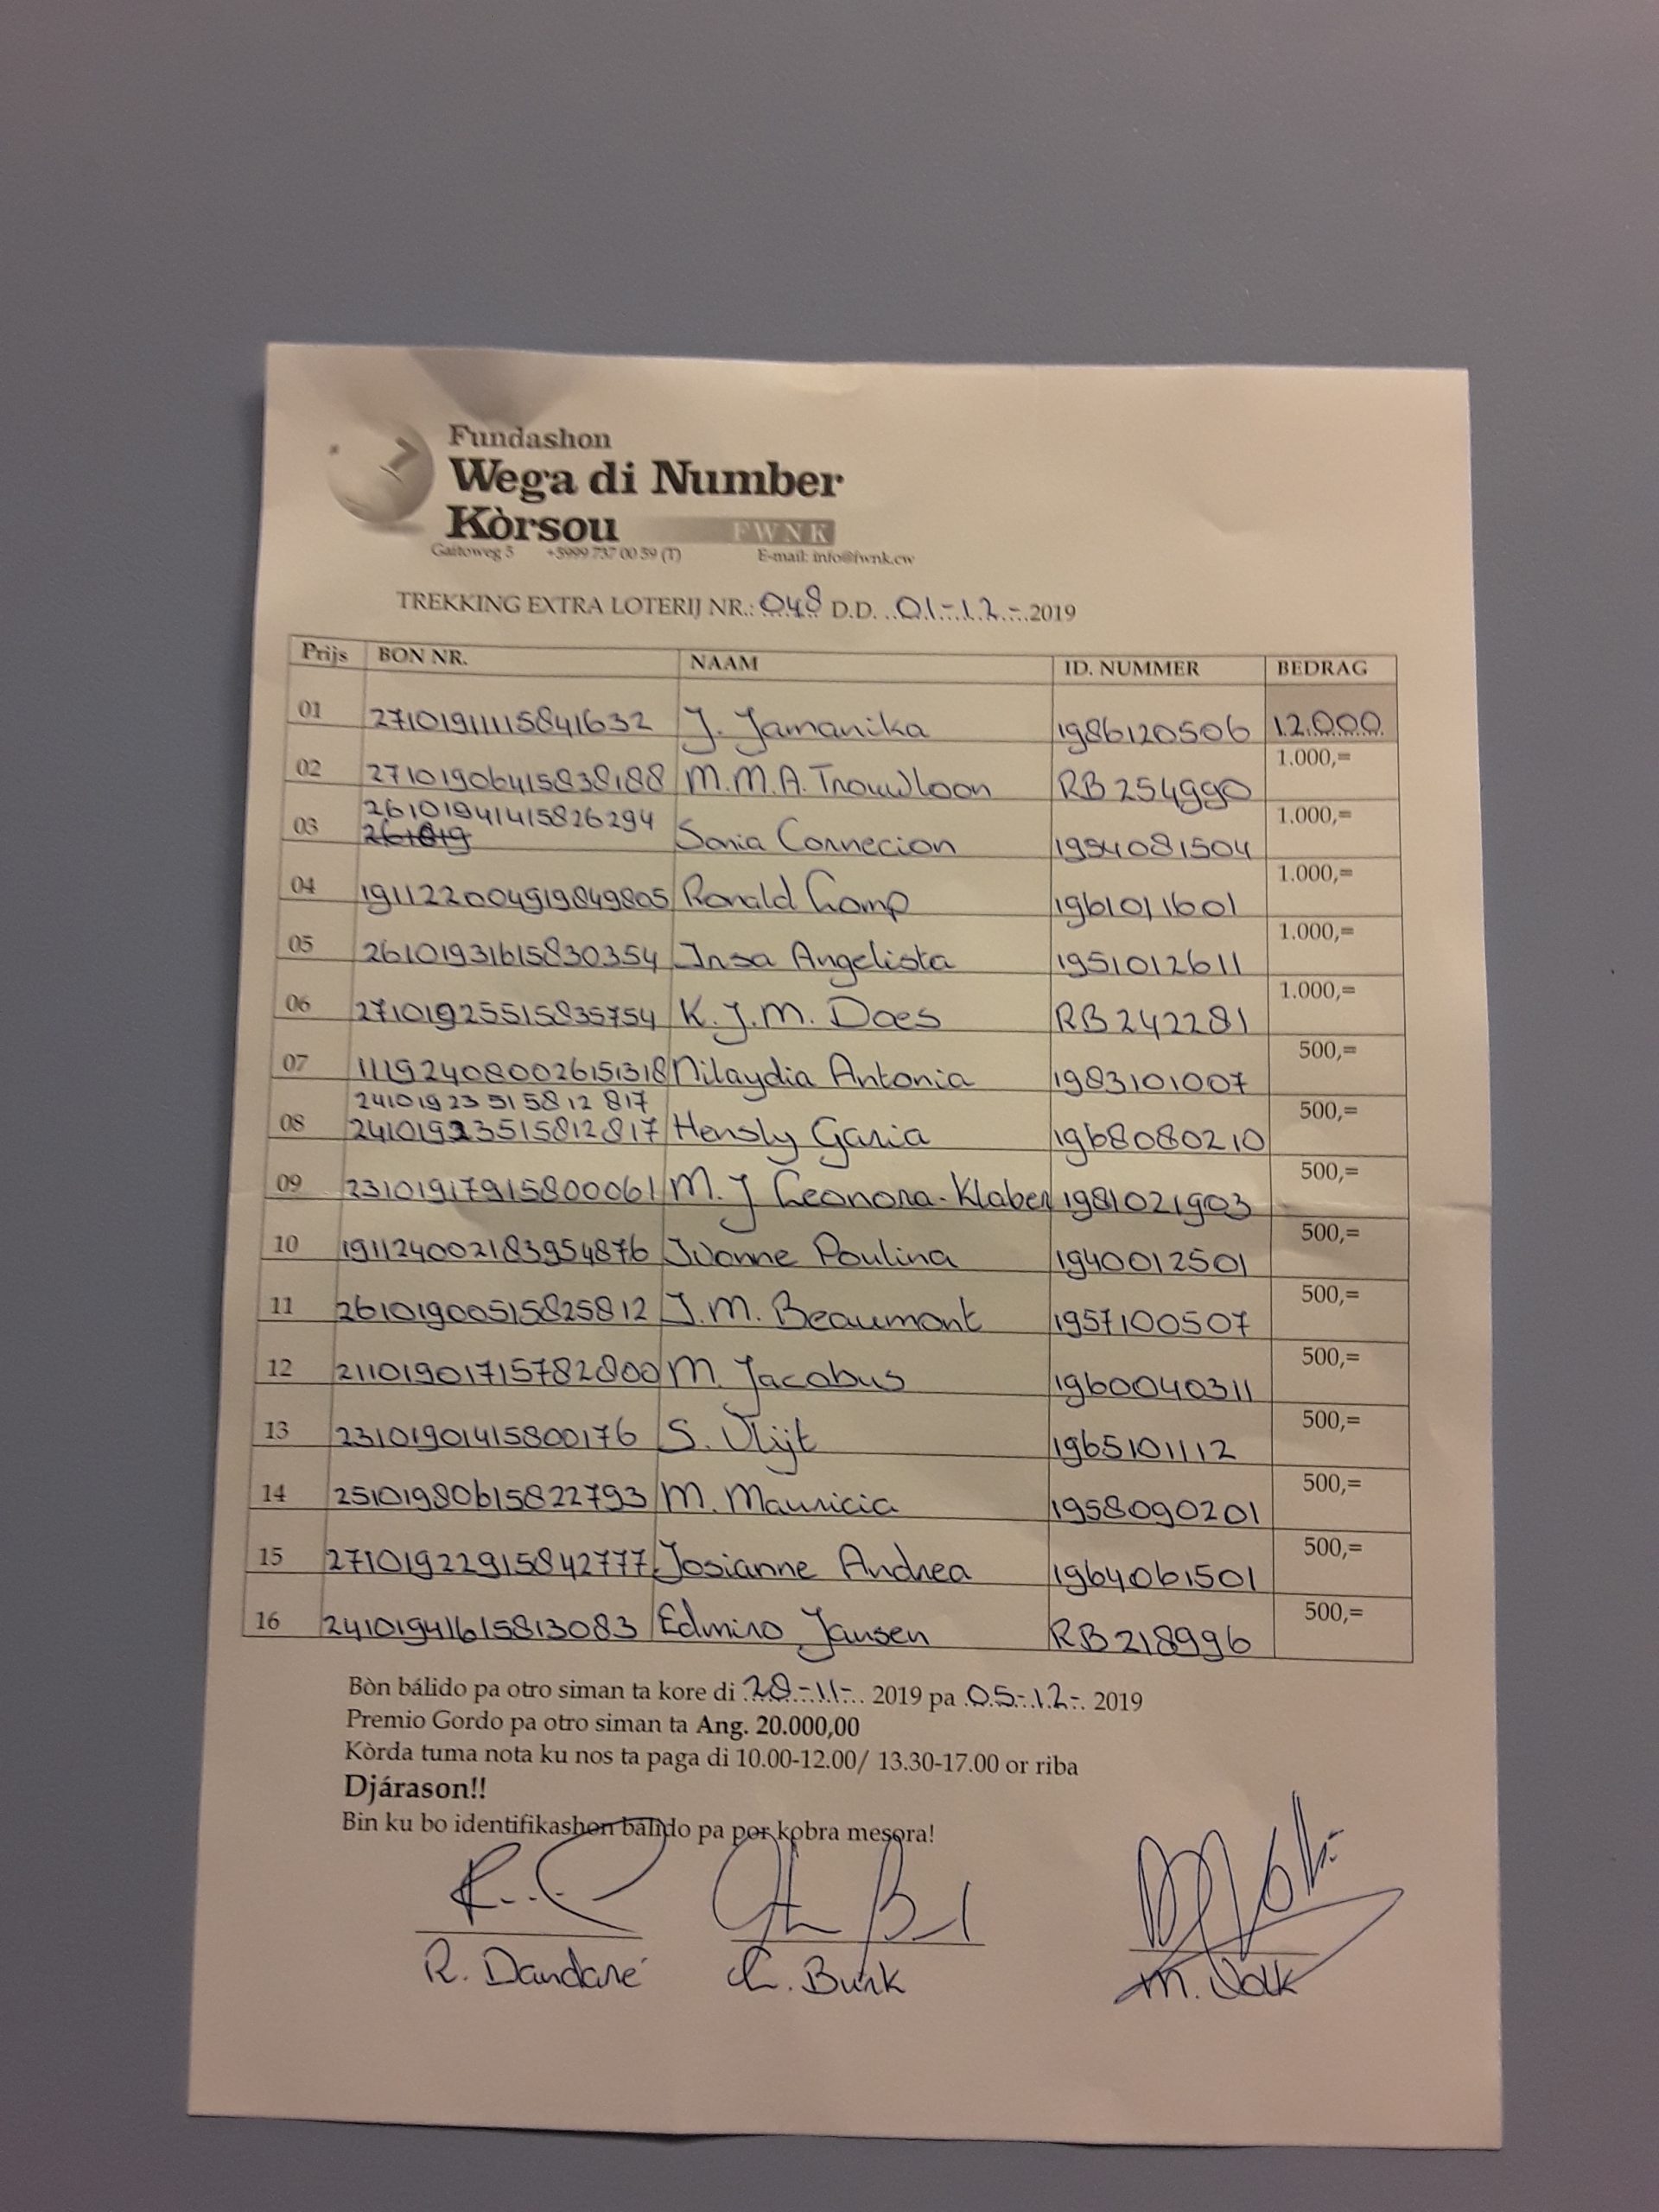 Fundashon
Wega di Number
Kòrsou FWNK
Gaitoweg 5 +5999 737 00 59 (T) E-mail: info@fwnk.cw
TREKKING EXTRA LOTERIJ NR.: 048 D.D. 01-12-2019
Prijs BON NR. NAAM ID. NUMMER BEDRAG
01 27101911115841632 J. Jamanika 1986120506 12.000
02 27101906415838188 M.M.A. Trouwloon RB 254990 1.000,=
03 26101941415826294 Sonia Connecion 1954081504 1.000,=
261019
04 191122004919849805 Ronald Comp 1961011601 1.000,=
05 26101931615830354 Insa Angelista 1951012611 1.000,=
06 27101925515835754 K.J.M. Does RB 242281 1.000,=
07 111924080026151318 Nilaydia Antonia 1983101007 500,=
241019 23 51 58 12 817
08 24101923515812817 Hensly Garia 1968080210 500,=
09 23101917915800061 M.J Leonora-Klaber 1981021903 500,=
10 191124002183954876 Ivonne Poulina 1940012501 500,=
11 26101900515825812 J.M. Beaumont 1957100507 500,=
12 21101901715782800 M. Jacobus 1960040311 500,=
13 23101901415800176 S. Vlijt 1965101112 500,=
14 25101980615822793 M. Mauricia 1958090201 500,=
15 27101922915842777 Josianne Andrea 1964061501 500,=
16 24101941615813083 Edmiro Jansen RB 218996 500,=
Bòn bálido pa otro siman ta kore di 28-11-2019 pa 05-12-2019
Premio Gordo pa otro siman ta Ang. 20.000,00
Kòrda tuma nota ku nos ta paga di 10.00-12.00/ 13.30-17.00 or riba
Djárason!!
Bin ku bo identifikashon bálido pa por kobra mesora!
R. Dandaré C. Burk M. Valk